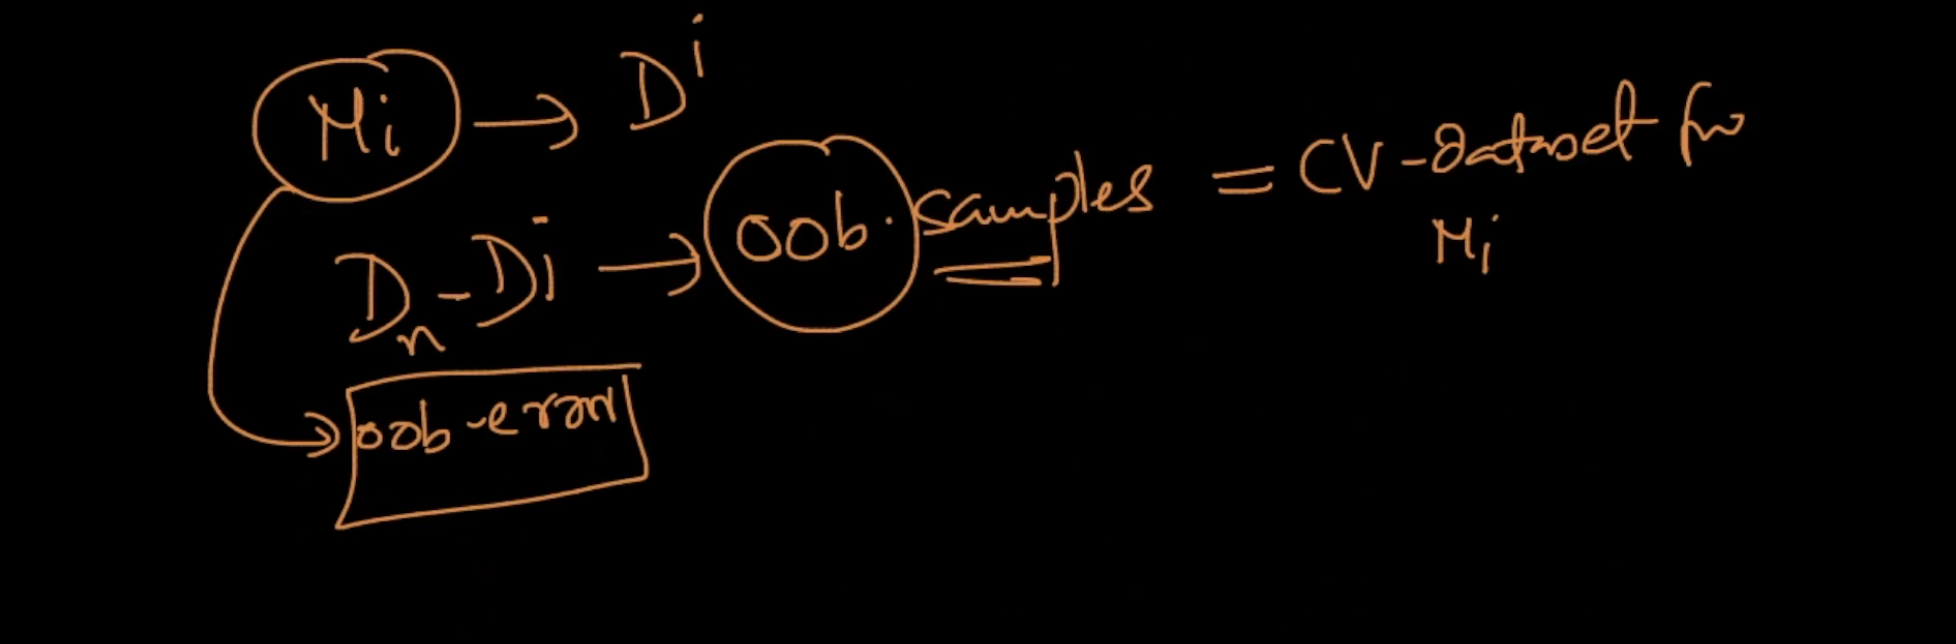 Mi → Di
Dn - Di → oob. samples = CV-dataset for
Mi
oob-error